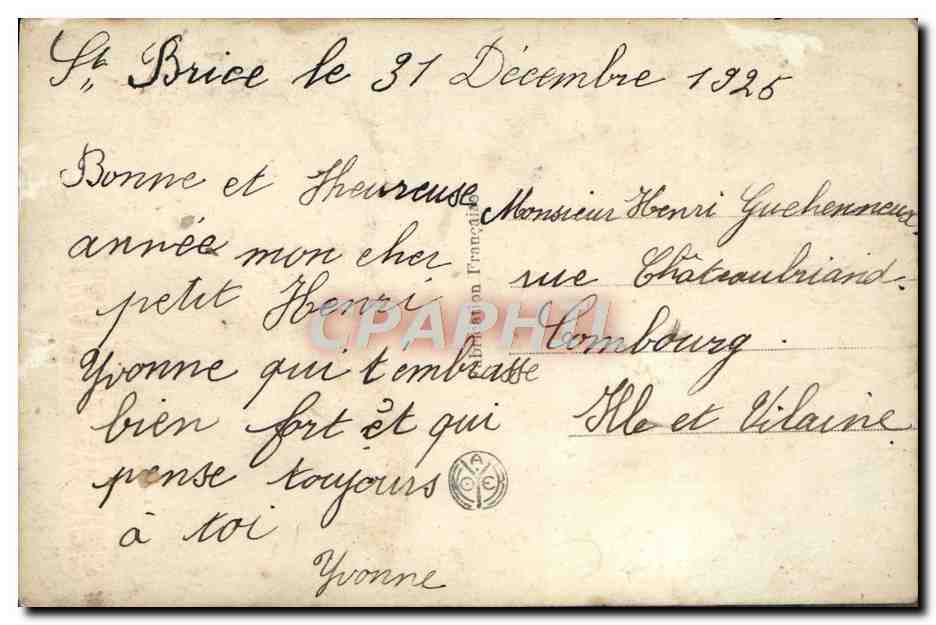 St Brice le 31 Décembre 1925
Bonne et Hheureuse
année mon cher
petit Henri
Yvonne qui t'embrasse
bien fort et qui
pense toujours
à toi
Yvonne
Fabrication Française
Monsieur Henri Guehenneux
rue Châteaubriand
Combourg.
Ille et Vilaine
CPAPHIL
A
O E